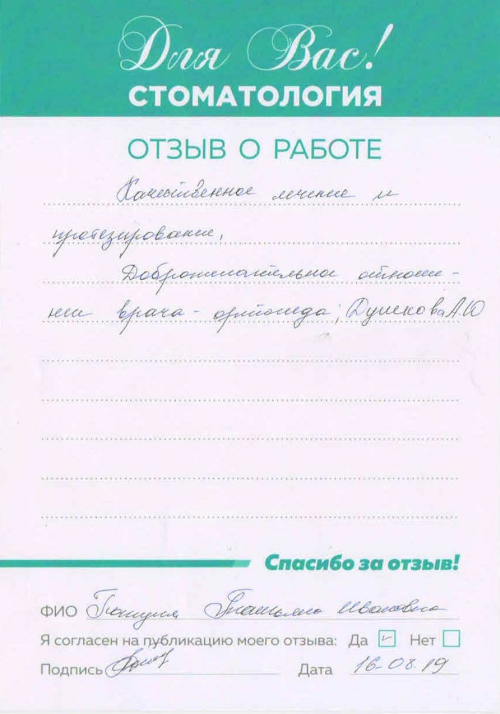 Для Вас!
СТОМАТОЛОГИЯ
ОТЗЫВ О РАБОТЕ
Качественное лечение и
протезирование,
Доброжелательное отноше-
ние врача-ортопеда, А.Ю
Спасибо за отзыв!
ФИО Татьяна Ивановна
Я согласен на публикацию моего отзыва: Да Нет
Подпись Дата 16.08.19